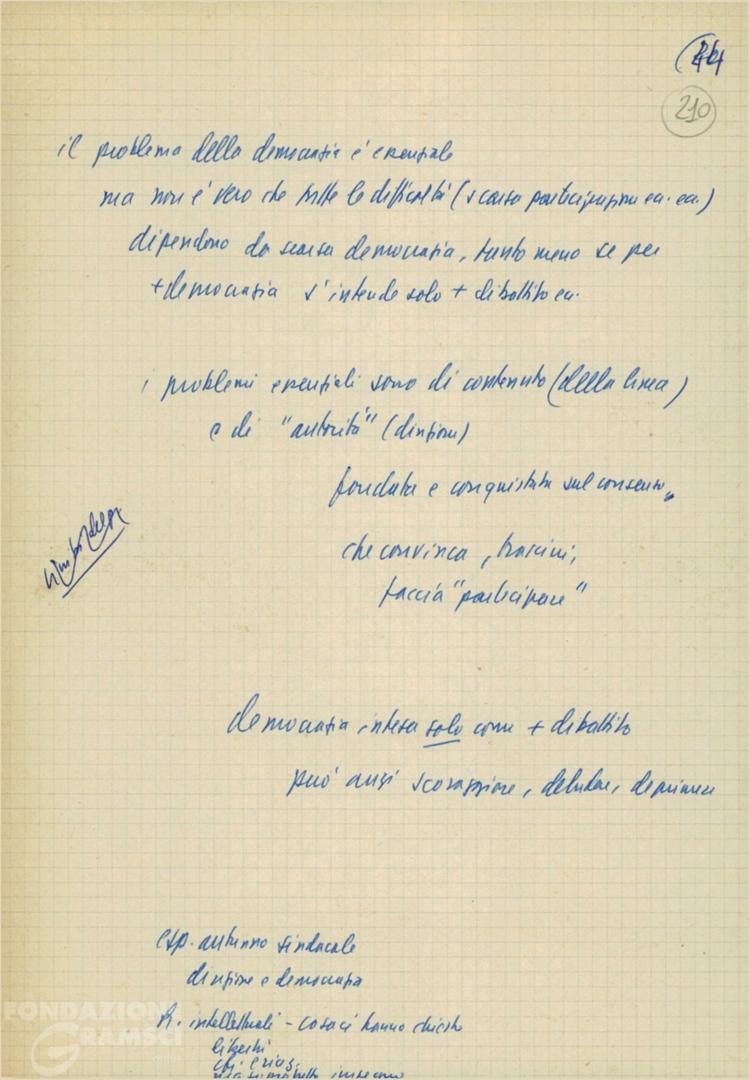 44
210
il problema della democrazia é essenziale
ma non é vero che tutte le difficoltà (scarsa partecipazione ecc. ecc.)
dipendono da scarsa democrazia, tanto meno se per
+ democrazia s'intende solo + dibattito ecc.
i problemi essenziali sono di contenuto (della linea)
e di "autorità" (direzione)
fondata e conquistata sul consenso,
che convinca, trascini,
faccia "partecipare"
democrazia intesa solo come + dibattito
può anzi scoraggiare, deludere, deprimere
esp. autunno sindacale
direzione e democrazia
R. intellettuali - cosa ci hanno chiesto
FONDAZIONE
GRAMSCI